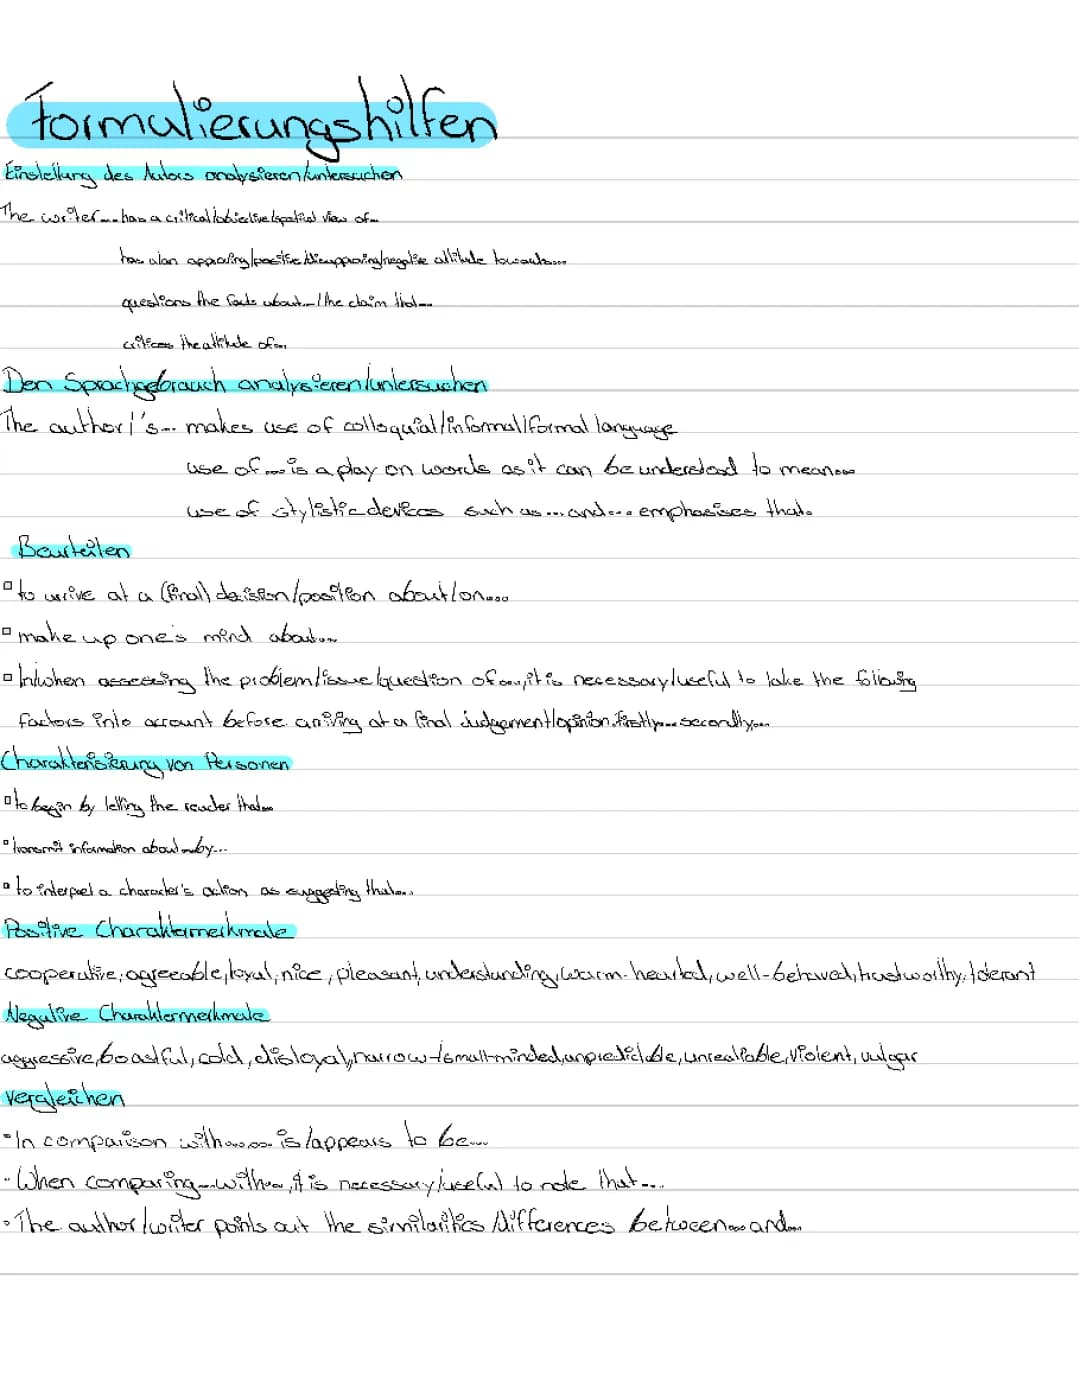 Formulierungshilfen
Einstellung des Autors analysieren/untersuchen
The writer... has a critical/objective/ view of...
has a/an approving/positive/disapproving/negative attitude towards...
questions the facts about.../the claim that...
the attitude of...
Den Sprachgebrauch analysieren/untersuchen
The author/'s... makes use of colloquial/informal/formal language
use of ... is a play on words as it can be understood to mean...
use of stylistic devices such as ... and ... emphasises that.
Beurteilen
▫ to arrive at a (final) decision/position about/on....
▫ make up one's mind about...
▫ In/when assessing the problem/issue/question of..., it is necessary/useful to take the following
factors into account before arriving at a final judgement/opinion. Firstly,... secondly,...
Charakterisierung von Personen
▫ to begin by telling the reader that...
▫ transmit information about...by...
▫ to interpret a character's action as suggesting that...
Positive Charaktermerkmale
cooperative, agreeable, loyal, nice, pleasant, understanding, warm-hearted, well-behaved, trustworthy, tolerant
Negative Charaktermerkmale
aggressive, boastful, cold, disloyal, narrow-/small-minded, unpredictable, unreliable, violent, vulgar
vergleichen
• In comparison with...... is/appears to be...
• When comparing...with..., it is necessary/useful to note that...
• The author/writer points out the similarities/differences between...and...